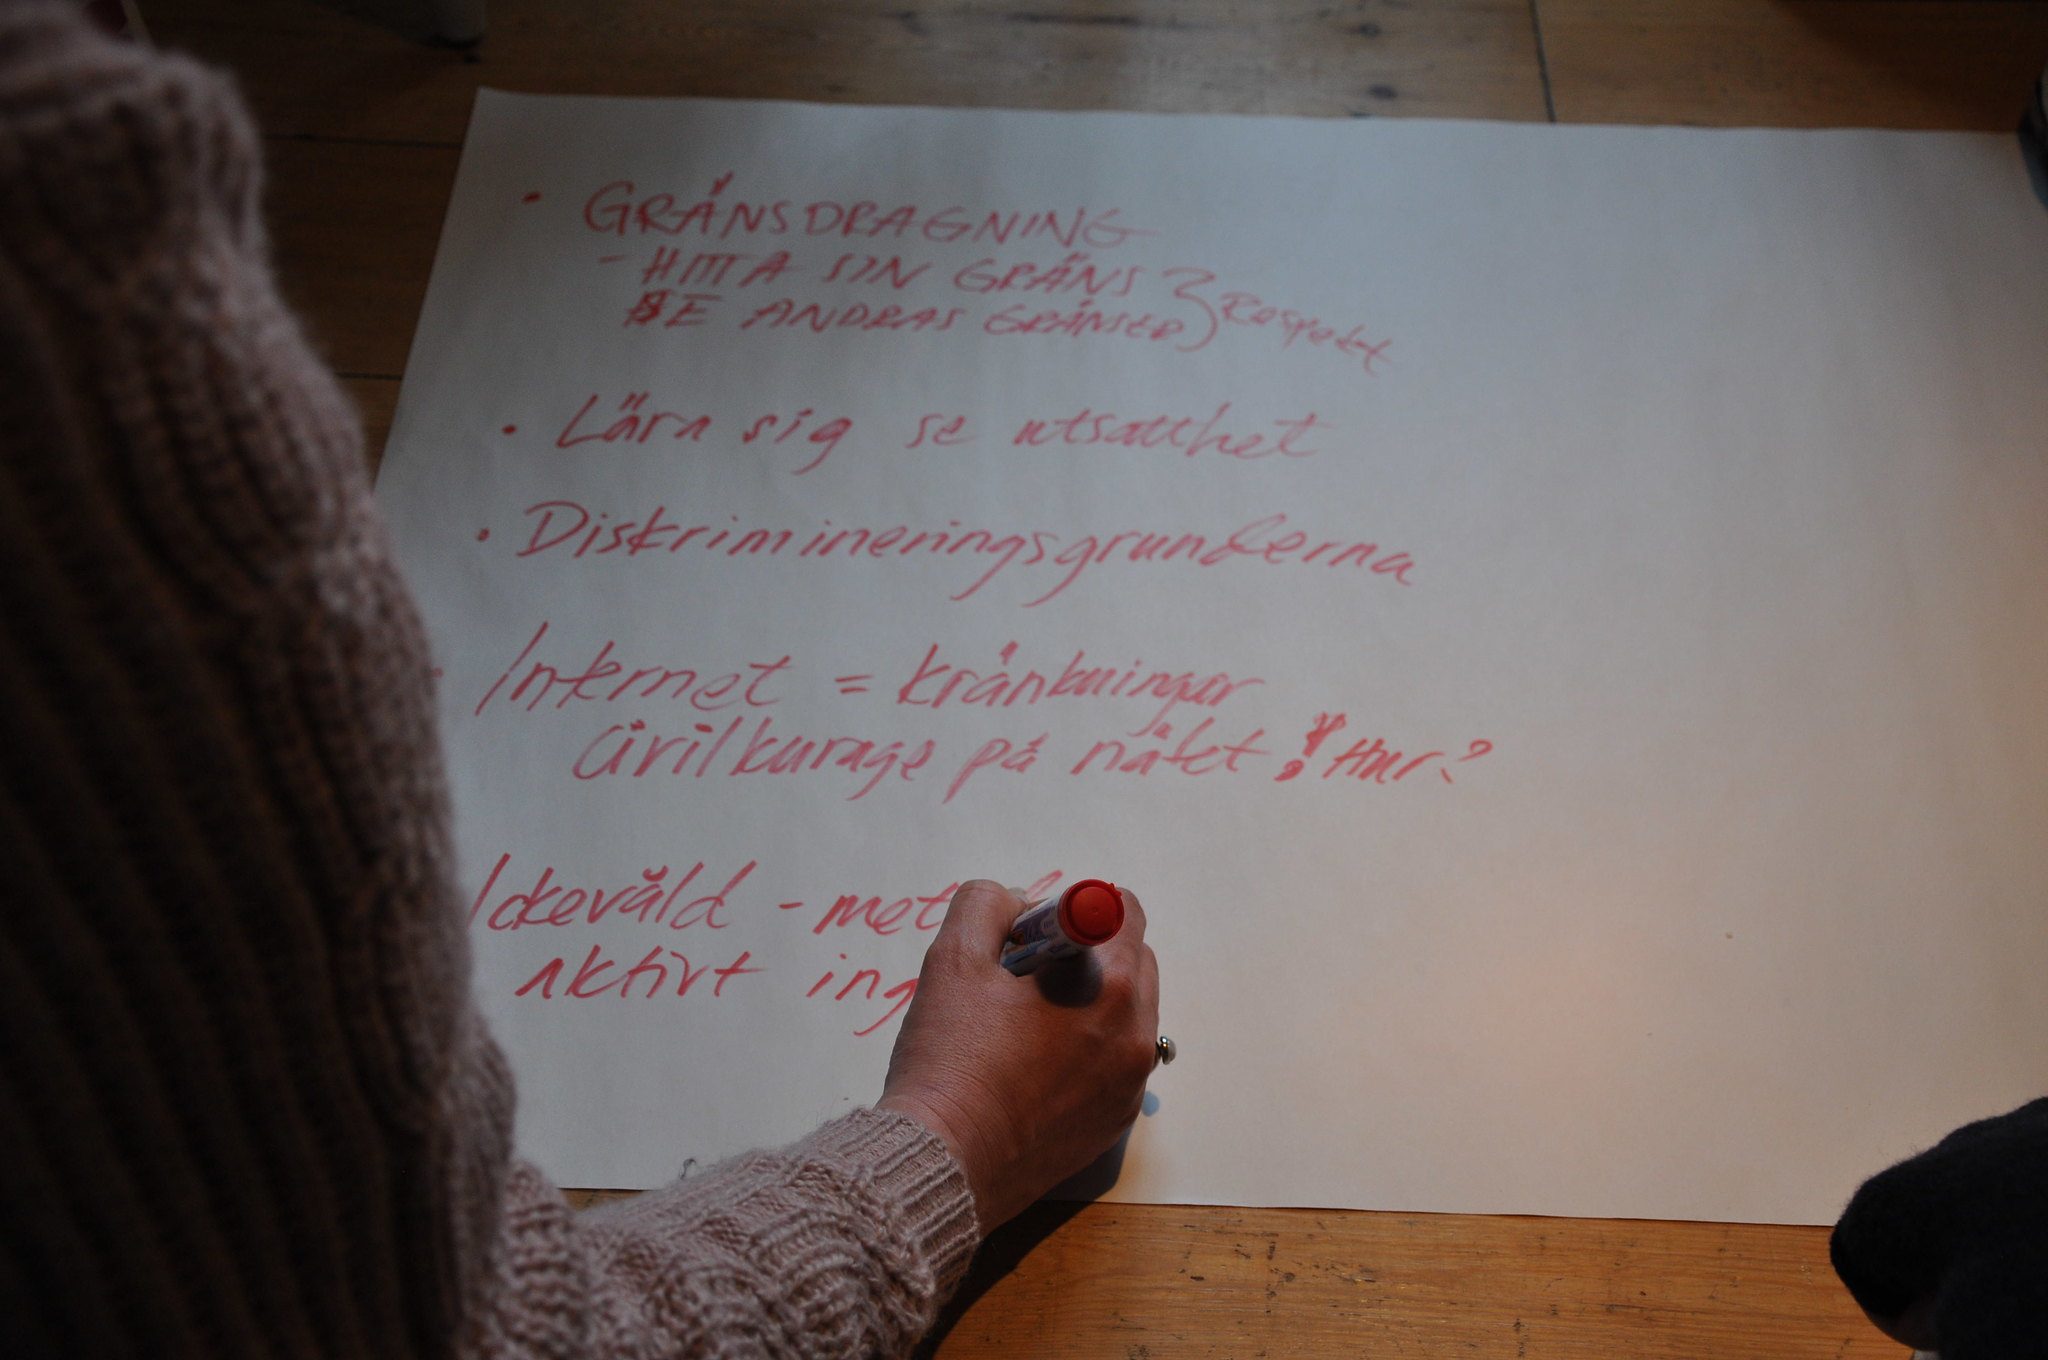 • GRÄNSDRAGNING
- HITTA SIN GRÄNS } Respekt
SE ANDRAS GRÄNSER
• Lära sig se utsatthet
• Diskrimineringsgrunderna
• Internet = kränkningar
Civilkurage på nätet! Hur?
Ickevåld - met
aktivt ing